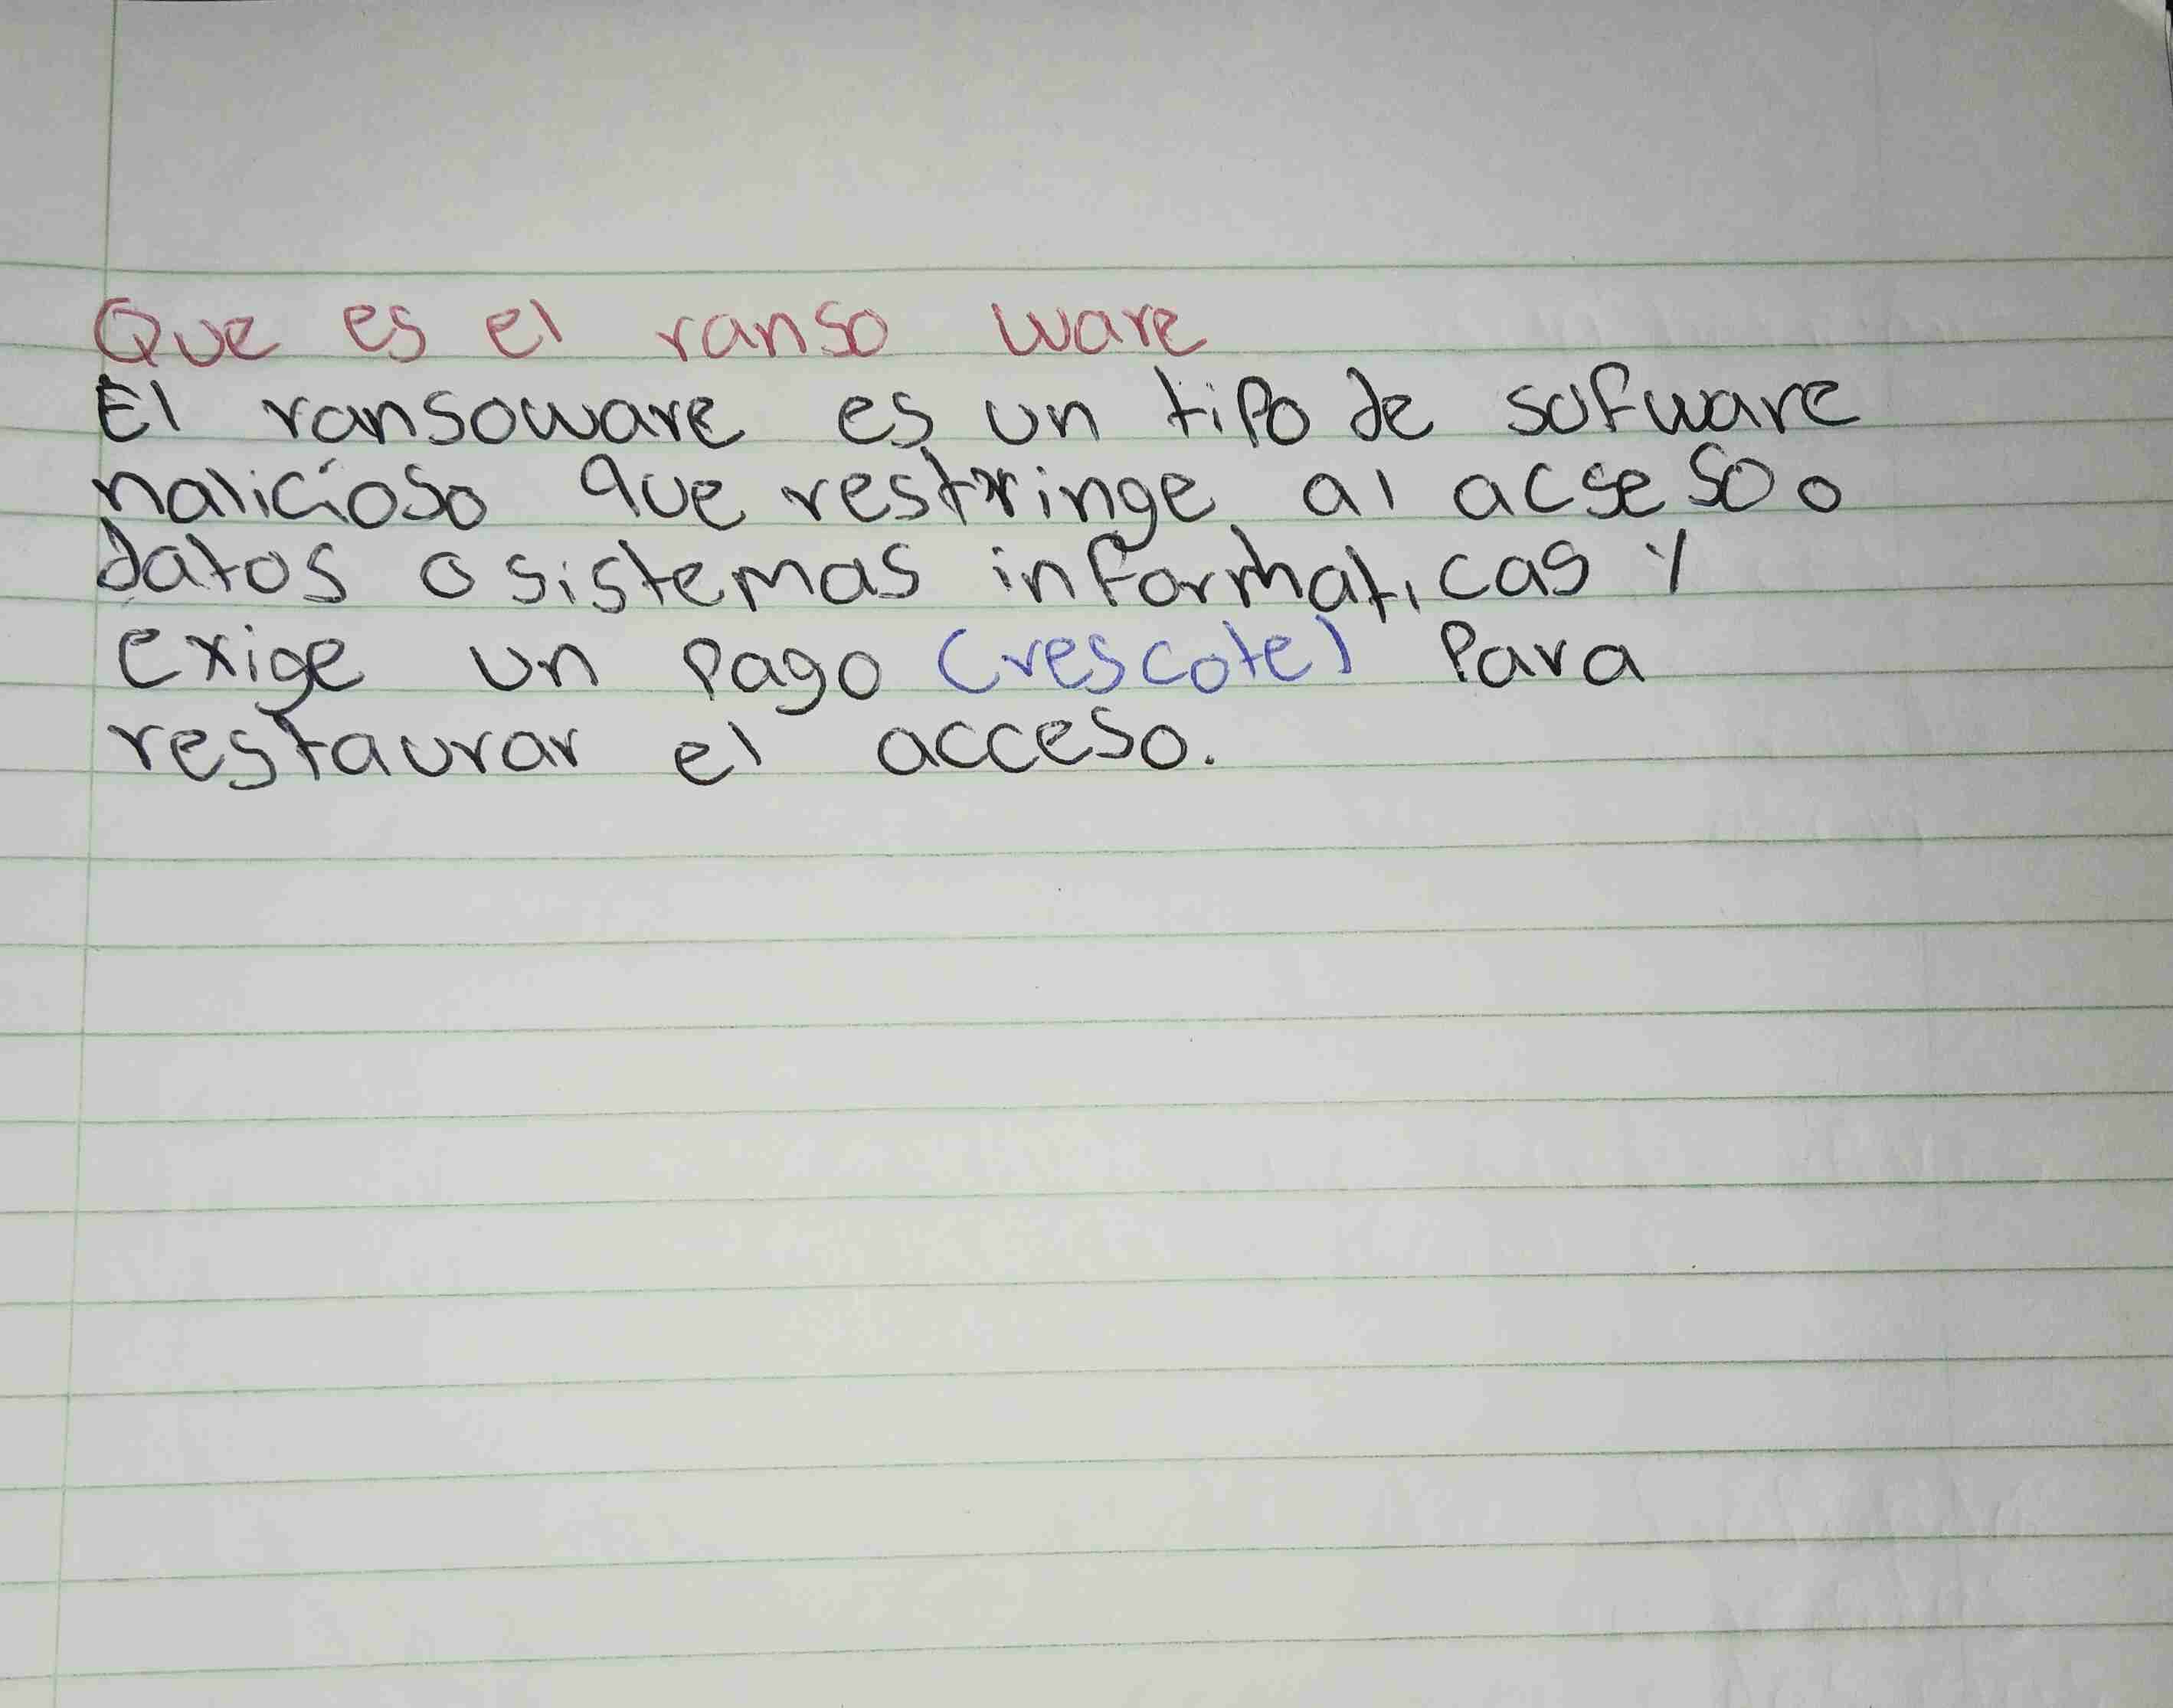 Que es el ranso ware
El ransoware es un tipo de sofware
nalicioso que restringe al acseso o
datos o sistemas informaticas y
exige un pago (rescote) para
restaurar el acceso.